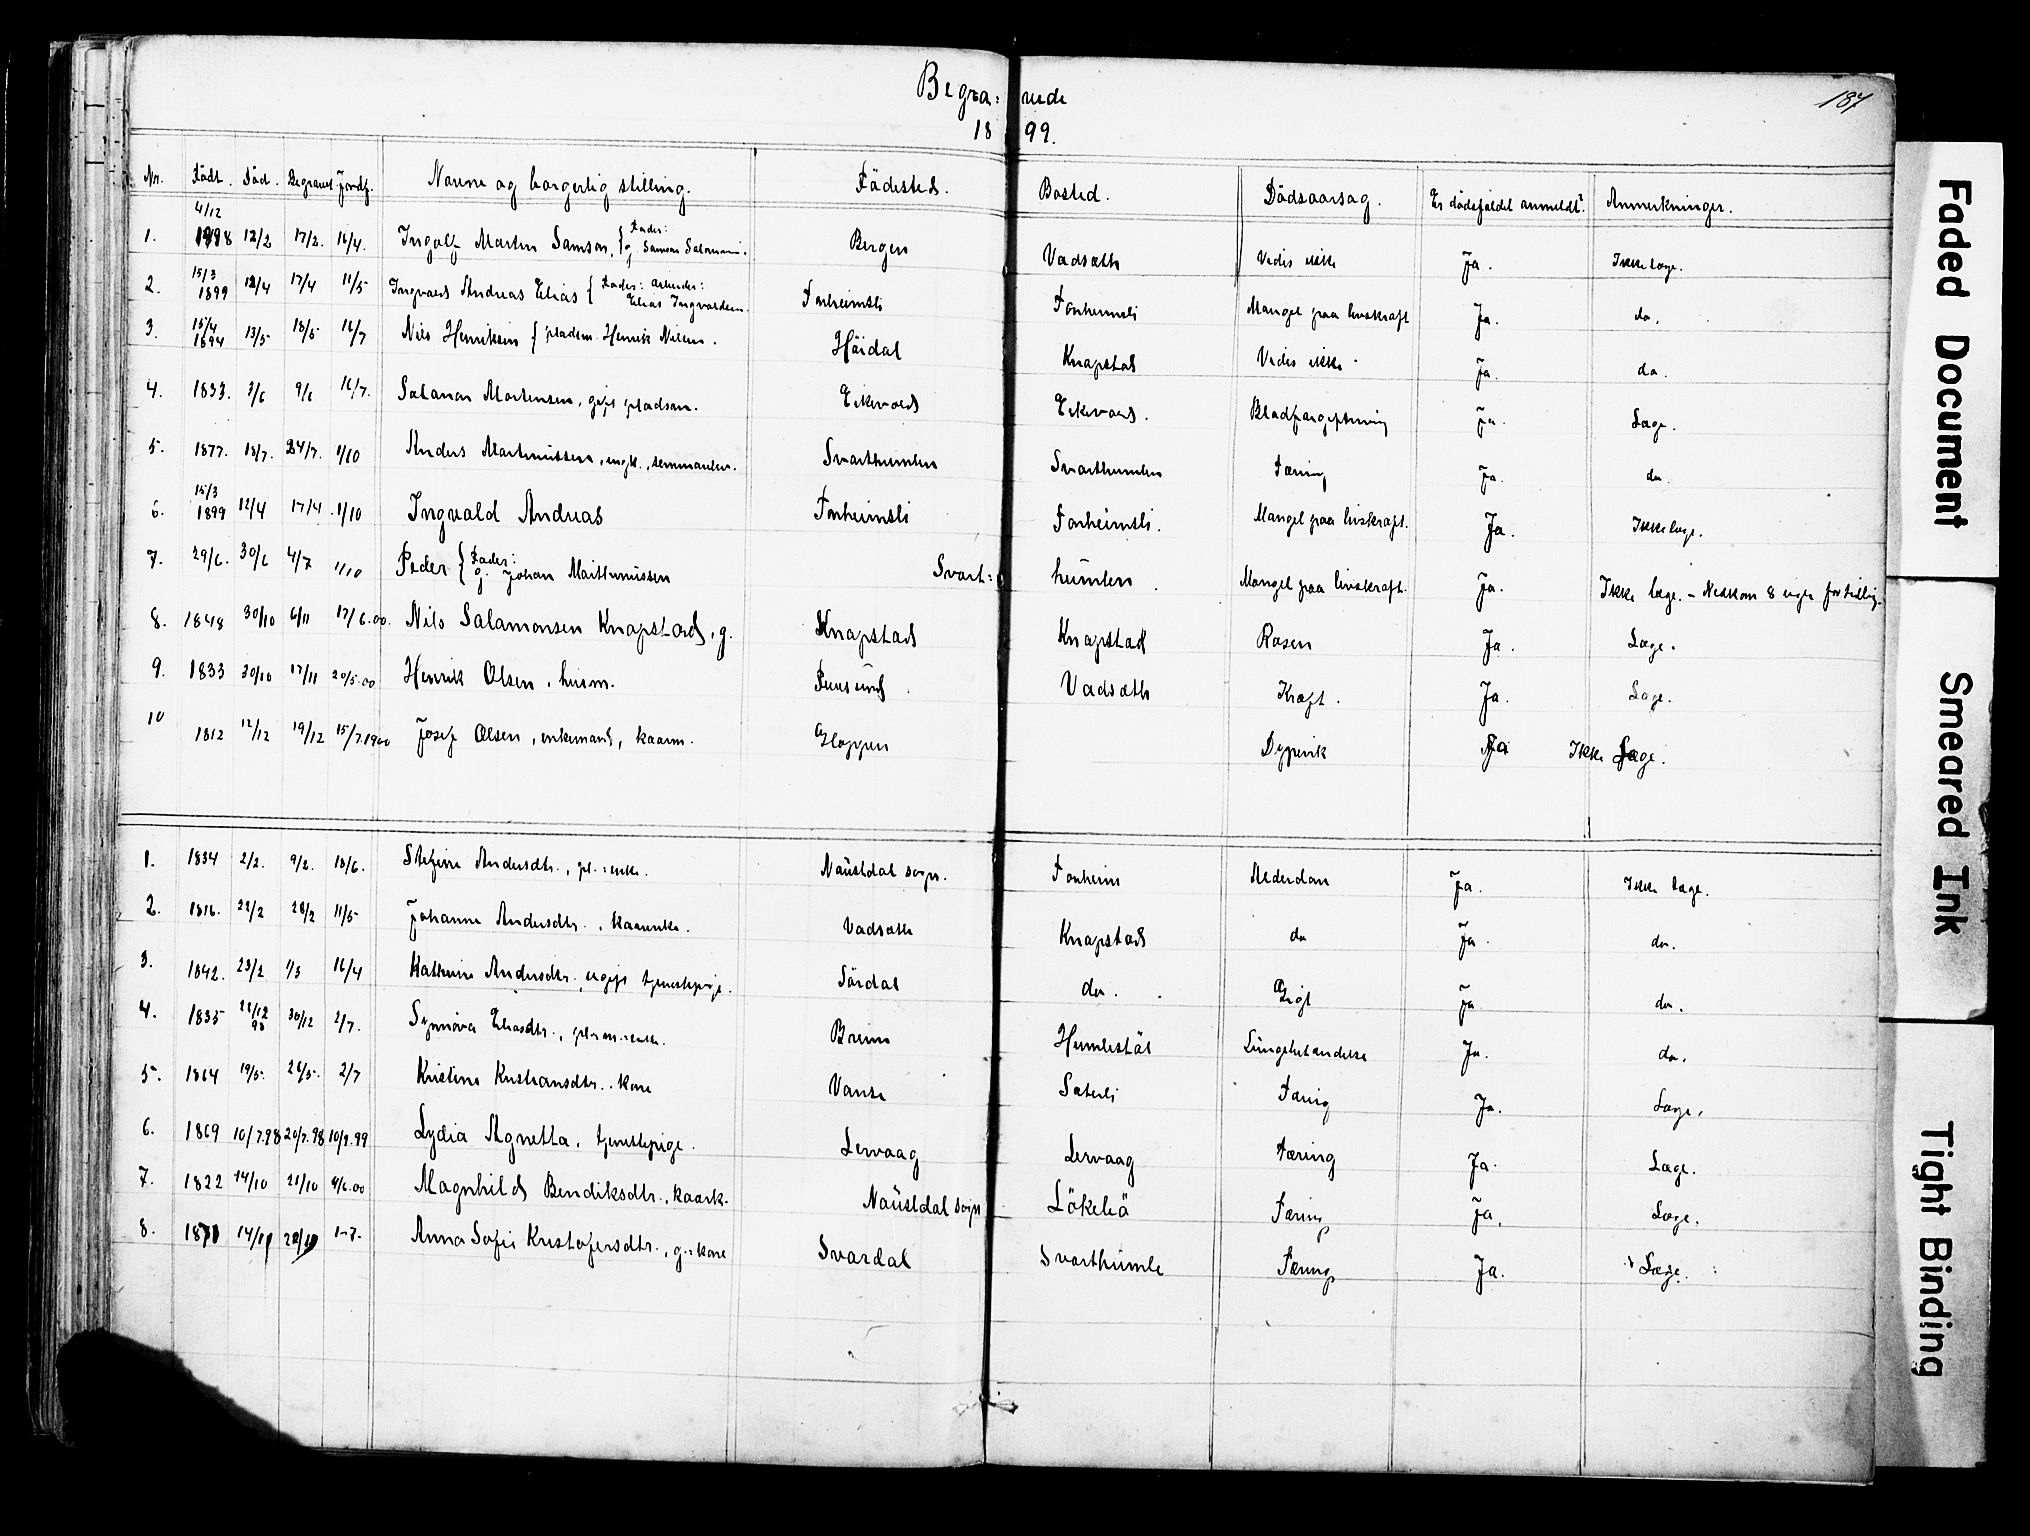 Begra= vede
187
18 99.
Nr. Födt. Död. Begravet Jordf. Navne og borgerlig stilling. Födested. Bosted. Dödsaarsag. Er dödsfaldet anmeldt? Anmerkninger.
1. 4/12 1898 12/2 17/2. 16/4. Ingolf Martin Samson, { Fader: g. Samson Salomons. Bergen Vadsæth Vides ikke Ja. Ikke læge.
2. 15/3 1899 12/4 17/4 11/5 Ingvald Andreas Elias { Fader: arbeider: Elias Ingvaldsen Fonheimsli Fonheimsli Mangel paa livskraft Ja. do.
3. 15/4 1894 13/5 18/5 16/7 Nils Henriksen { pladsm. Henrik Nilsen. Höidal Knapstad Vides ikke Ja. do.
4. 1833. 3/6 9/6 16/7. Salamon Mortensen, gift pladsm. Eikevold Eikevold. Blodforgiftning Ja. Læge.
5. 1877. 18/7. 24/7. 1/10 Anders Martinussen, ungk., seminarelev. Svarthumlen Svarthumlen Tæring Ja. do.
6. 15/3 1899 12/4 17/4. 1/10 Ingvald Andreas Fonheimsli Fonheimsli. Mangel paa livskraft. Ja. Ikke læge.
7. 29/6. 30/6 4/7 1/10 Peder { Fader: g. Johan Marthinussen Svart= humlen. Mangel paa livskraft. Ja. Ikke læge. – Nedkom 8 uger for tidlig.
8. 1848 30/10 6/11 17/6.00. Nils Salamonsen Knapstad, g. Knapstad Knapstad Rosen Ja. Læge.
9. 1833 30/10 17/11 20/5.00 Henrik Olsen, husm. Vadsæth Kræft. Ja. Læge.
10 1812 12/12 19/12 15/7.1900 Josef Olsen, enkemand, kaarm. Gloppen Dypevik Ja Ikke Læge.
1. 1834 2/2. 9/2. 18/6. Stefine Andersdtr., pl.=enke. Naustdal sogn. Fonheim Alderdom Ja. Ikke læge.
2. 1816. 22/2 28/2 11/5 Johanne Andersdtr., kaarenke. Vadsæth Knapstad do Ja. do.
3. 1842. 23/2 1/3 16/4 Kathrine Andersdtr., ugift tjenestepige. Sördal do. Gigt Ja do.
4. 1835 22/12 98 30/12 2/7. Synnöva Eliasdtr., Breim Humlestöl Lungebetændelse Ja. do.
5. 1864 19/5. 26/5. 2/7 Kristine Kristiansdtr., kone Vanse Sæterli Tæring Ja. Læge.
6. 1869 10/7.98 20/7.98 10/9.99 Lydia Agnetta, tjenestepige. Lervaag Lervaag Tæring Ja. Læge.
7. 1822 14/10 21/10 9/6.00 Magnhild Bendiksdtr., kaark. Naustdal sogn Lökelö Tæring Ja. Læge.
8. 1871 14/11 22/11 1-7. Anna Sofie Kristofersdtr., g.=kone Svardal Svarthumle Tæring Ja. Læge.
Faded Document
Smeared Ink
Tight Binding